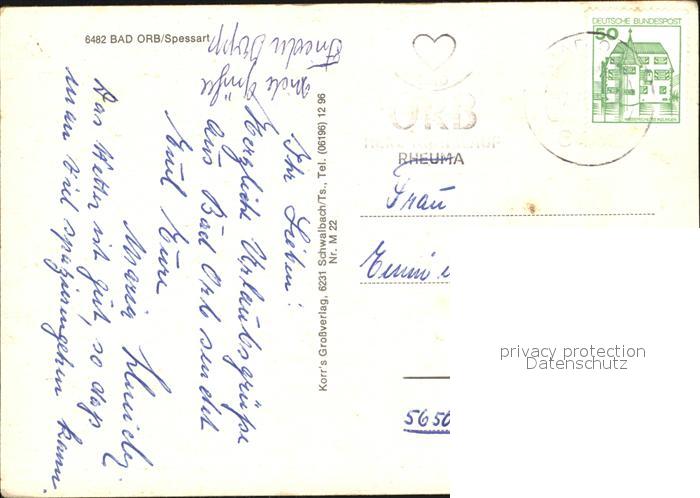 6482 BAD ORB/Spessart
Ihr Lieben!
Herzliche Urlaubsgrüße
aus Bad Orb sendet
Euch Eure
Maria
Das Wetter ist gut, so daß
man viel spazierengehen kann.
viele Grüße
Frieda
Korr's Großverlag, 6231 Schwalbach/Ts., Tel. (06196) 12 96
Nr. M 22
ORB
RHEUMA
DEUTSCHE BUNDESPOST
50
Frau
5650
privacy protection
Datenschutz